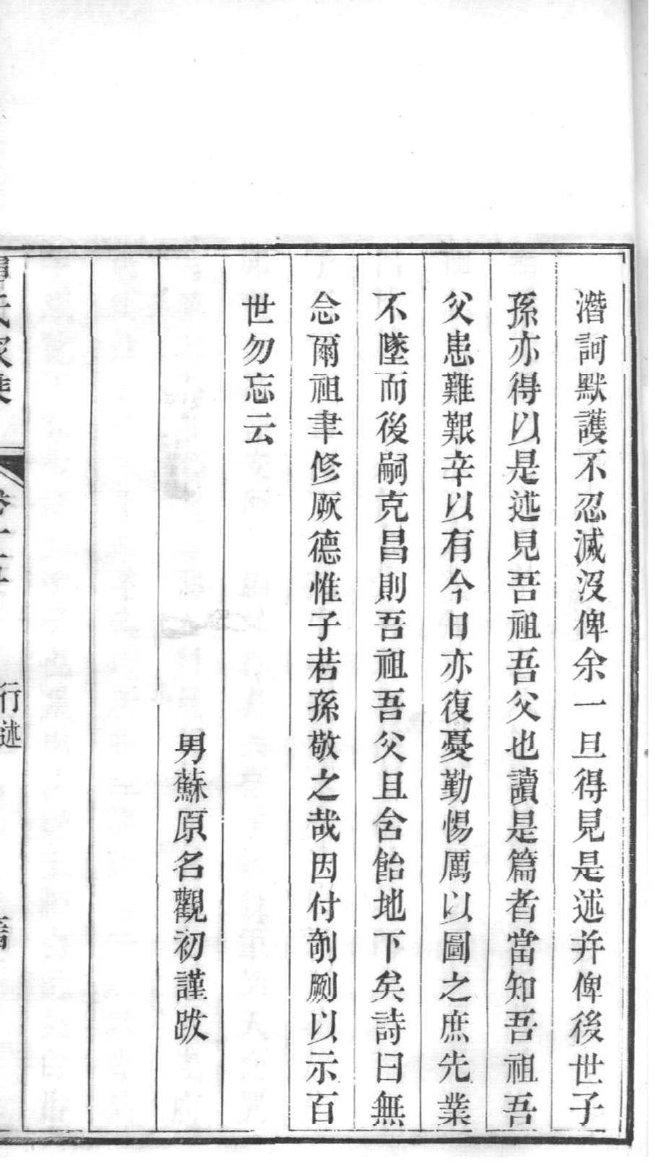 潛訶默護不忍滅沒俾余一旦得見是述并俾後世子
孫亦得以是述見吾祖吾父也讀是篇者當知吾祖吾
父患難艱辛以有今日亦復憂勤惕厲以圖之庶先業
不墜而後嗣克昌則吾祖吾父且含飴地下矣詩曰無
念爾祖聿修厥德惟子若孫敬之哉因付剞劂以示百
世勿忘云
男蘇原名觀初謹跋
氏家乘
行述